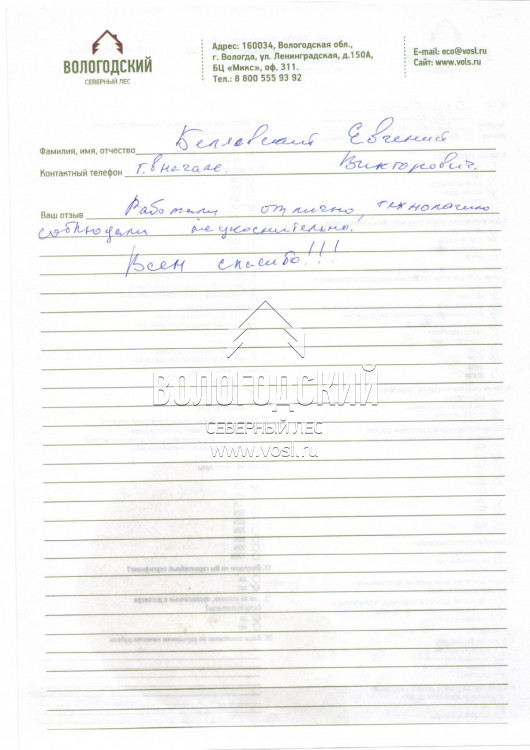 ВОЛОГОДСКИЙ
СЕВЕРНЫЙ ЛЕС
Адрес: 160034, Вологодская обл.,
г. Вологда, ул. Ленинградская, д.150А,
БЦ «Микс», оф. 311.
Тел.: 8 800 555 93 92
E-mail: eco@vosl.ru
Сайт: www.vols.ru
Фамилия, имя, отчество Белявский Евгений
Контактный телефон т. в начале. Викторович.
Ваш отзыв Работали отлично, технологию
соблюдали неукоснительно.
Всем спасибо!!!
ВОЛОГОДСКИЙ
СЕВЕРНЫЙ ЛЕС
www.vosl.ru